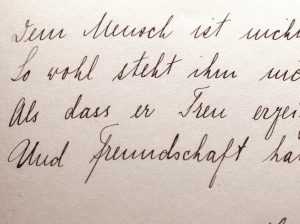 Dem Mensch ist nicht
So wohl steht ihm nic
Als dass er Treu erzei
Und Freundschaft ha